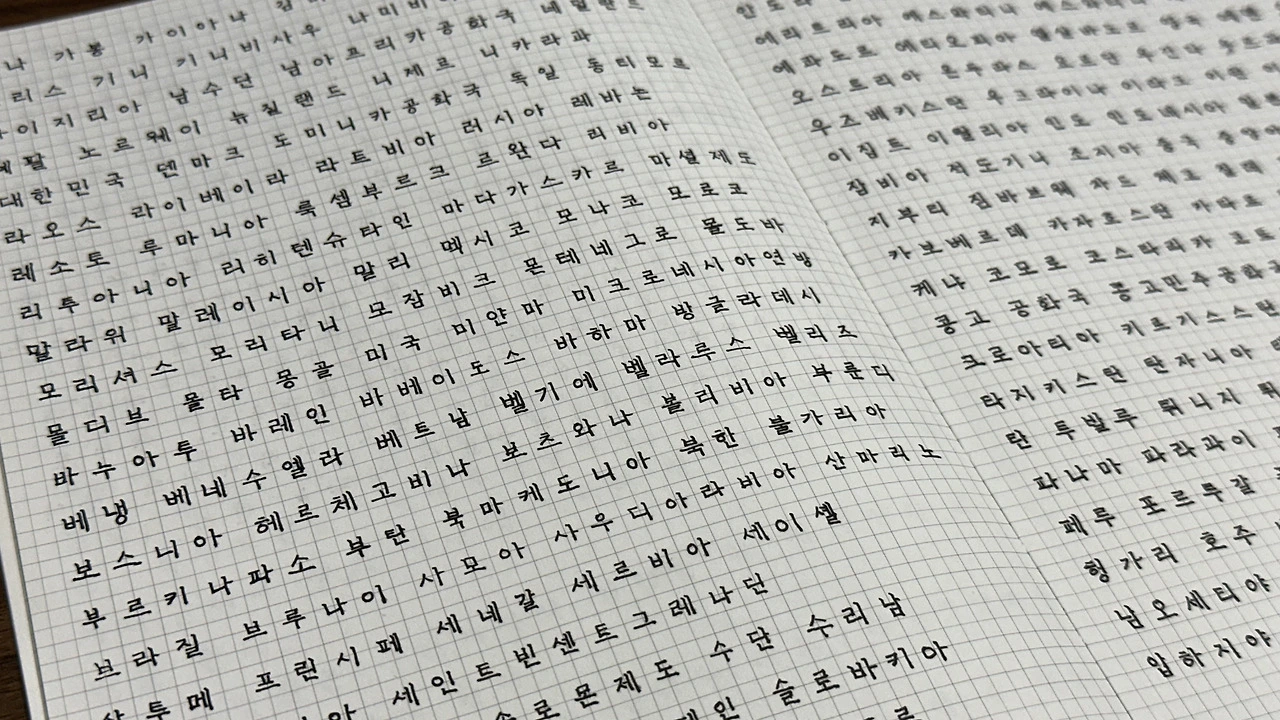 가봉 가이아나
리스 기니 기니비사우 나미비
이지리아 남수단 남아프리카공화국 네덜란드
네팔 노르웨이 뉴질랜드 니제르 니카라과
대한민국 덴마크 도미니카공화국 독일 동티모르
라오스 라이베이라 라트비아 러시아 레바논
레소토 루마니아 룩셈부르크 르완다 리비아
리투아니아 리히텐슈타인 마다가스카르 마셜제도
말라위 말레이시아 말리 멕시코 모나코 모로코
모리셔스 모리타니 모잠비크 몬테네그로 몰도바
몰디브 몰타 몽골 미국 미얀마 미크로네시아연방
바누아투 바레인 바베이도스 바하마 방글라데시
베냉 베네수엘라 베트남 벨기에 벨라루스 벨리즈
보스니아 헤르체고비나 보츠와나 볼리비아 부룬디
부르키나파소 부탄 북마케도니아 북한 불가리아
브라질 브루나이 사모아 사우디아라비아 산마리노
투메 프린시페 세네갈 세르비아 세이셸
아 세인트빈센트그레나딘
로몬제도 수단 수리남
인 슬로바키아
에리트리아 에스와티니 에스토니아
에콰도르 에티오피아 엘살바도르 영국 예멘
오스트리아 온두라스 요르단 우간다
우즈베키스탄 우크라이나 이라크 이란
이집트 이탈리아 인도 인도네시아 일본
잠비아 적도기니 조지아 중국 중앙
지부티 짐바브웨 차드 체코 칠레
카보베르데 카자흐스탄 카타르
케냐 코모로 코스타리카 코트
콩고 공화국 콩고민주공화국
크로아티아 키르기스스탄
타지키스탄 탄자니아
탄 투발루 튀니지 튀
파나마 파라과이
페루 포르투갈
헝가리 호주
남오세티야
압하지야